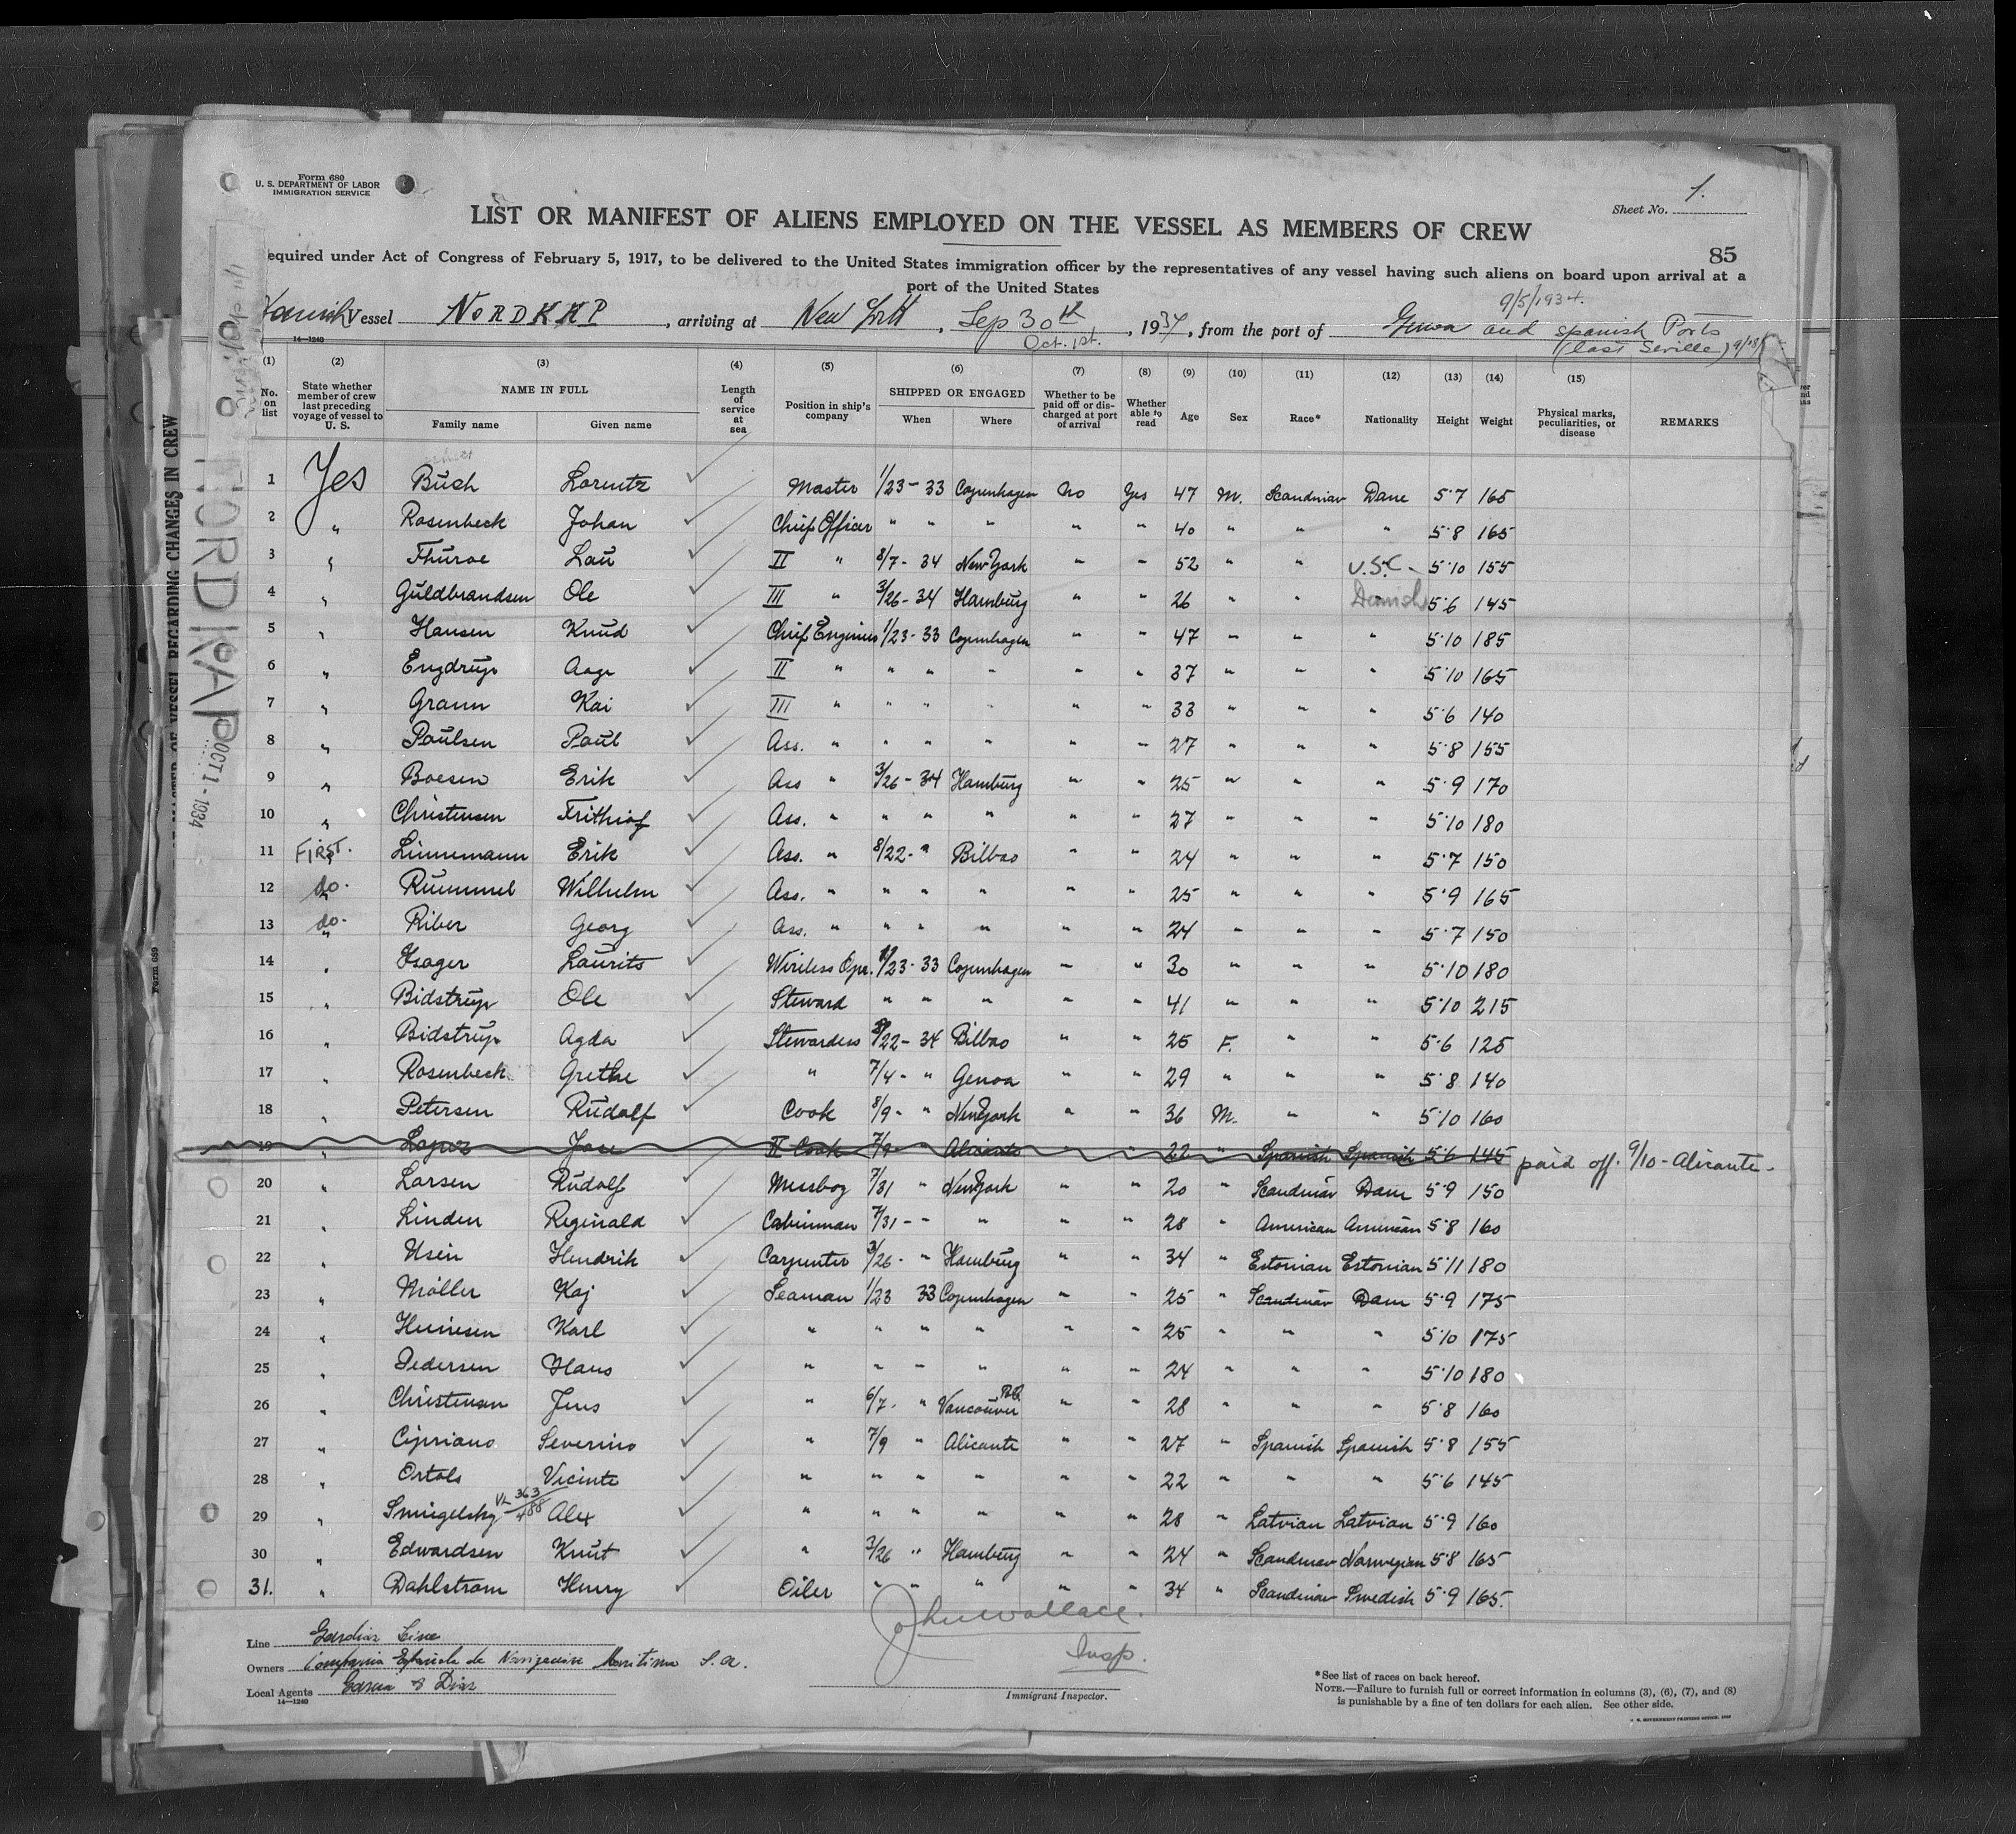 Form 680
U. S. DEPARTMENT OF LABOR
IMMIGRATION SERVICE
Sheet No. 1.
LIST OR MANIFEST OF ALIENS EMPLOYED ON THE VESSEL AS MEMBERS OF CREW
85
equired under Act of Congress of February 5, 1917, to be delivered to the United States immigration officer by the representatives of any vessel having such aliens on board upon arrival at a
port of the United States
9/5/1934.
Vessel NORDKAP, arriving at New York, Sep 30th, 1934, from the port of Genoa and Spanish Ports
14—1240 Oct. 1st. (last Seville) 9/18/
(1) (2) (3) (4) (5) (6) (7) (8) (9) (10) (11) (12) (13) (14) (15)
No. on list State whether member of crew last preceding voyage of vessel to U. S. NAME IN FULL Family name Given name Length of service at sea Position in ship's company SHIPPED OR ENGAGED When Where Whether to be paid off or discharged at port of arrival Whether able to read Age Sex Race* Nationality Height Weight Physical marks, peculiarities, or disease REMARKS
1 Yes Busch Lorentz Master 1/23-33 Copenhagen No Yes 47 M. Scandinav Dane 5'7 165
2 " Rosenbeck Johan Chief Officer " " " " " 40 " " " 5'8 165
3 " Thuroe Lau II " 8/7-34 New York " " 52 " " U.S.C. 5'10 155
4 " Guldbrandsen Ole III " 3/26-34 Hamburg " " 26 " " Danish 5'6 145
5 " Hansen Knud Chief Engineer 1/23-33 Copenhagen " " 47 " " " 5'10 185
6 " Engdrup Aage II " " " " " " 37 " " " 5'10 165
7 " Grann Kai III " " " " " " 33 " " " 5'6 140
8 " Paulsen Paul Ass. " " " " " " 27 " " " 5'8 155
9 " Boesen Erik Ass " 3/26-34 Hamburg " " 25 " " " 5'9 170
10 " Christensen Frithiof Ass. " " " " " " 27 " " " 5'10 180
11 FIRST. Linnemann Erik Ass. " 8/22-" Bilbao " " 24 " " " 5'7 150
12 do. Rummel Wilhelm Ass. " " " " " " 25 " " " 5'9 165
13 do. Riber Georg Ass. " " " " " " 24 " " " 5'7 150
14 " Isager Laurits Wireless Opr. 1/23-33 Copenhagen " " 30 " " " 5'10 180
15 " Bidstrup Ole Steward " " " " " 41 " " " 5'10 215
16 " Bidstrup Agda Stewardess 8/22-34 Bilbao " " 25 F. " " 5'6 125
17 " Rosenbeck Grethe " 7/4-" Genoa " " 29 " " " 5'8 140
18 " Petersen Rudolf Cook 8/9-" New York " " 36 M. " " 5'10 160
19 " Lopez Jose II Cook 7/9 Alicante " " 22 " Spanish Spanish 5'6 145 paid off. 9/10-Alicante-
20 " Larsen Rudolf Messboy 7/31 " New York " " 20 " Scandinav Dane 5'9 150
21 " Linden Reginald Cabinman 7/31-" " " " 28 " American American 5'8 160
22 " Usin Hendrik Carpenter 3/26-" Hamburg " " 34 " Estonian Estonian 5'11 180
23 " Möller Kaj Seaman 1/23 33 Copenhagen " " 25 " Scandinav Dane 5'9 175
24 " Heinesen Karl " " " " " " 25 " " " 5'10 175
25 " Pedersen Hans " " " " " " 24 " " " 5'10 180
26 " Christensen Jens " 6/7- " Vancouver BC " " 28 " " " 5'8 160
27 " Cipriano Severino " 7/9 " Alicante " " 27 " Spanish Spanish 5'8 155
28 " Ortols Vicinte " " " " " " 22 " " " 5'6 145
29 " Smigelsky VL 363/488 Alex " " " " " " 28 " Latvian Latvian 5'9 160
30 " Edwardsen Knut " 3/26 " Hamburg " " 24 " Scandinav Norwegian 5'8 165
31. " Dahlstrom Henry Oiler " " " " " 34 " Scandinav Swedish 5'9 165.
Line Gardiaz Line
Owners Compania Española de Navigacion Maritima S.A.
Local Agents Garcia & Diaz
14—1240
John Wallace.
Insp.
Immigrant Inspector.
*See list of races on back hereof.
NOTE.—Failure to furnish full or correct information in columns (3), (6), (7), and (8)
is punishable by a fine of ten dollars for each alien. See other side.
NORDKAP
OCT 1 - 1934
REGARDING CHANGES IN CREW
Form 689